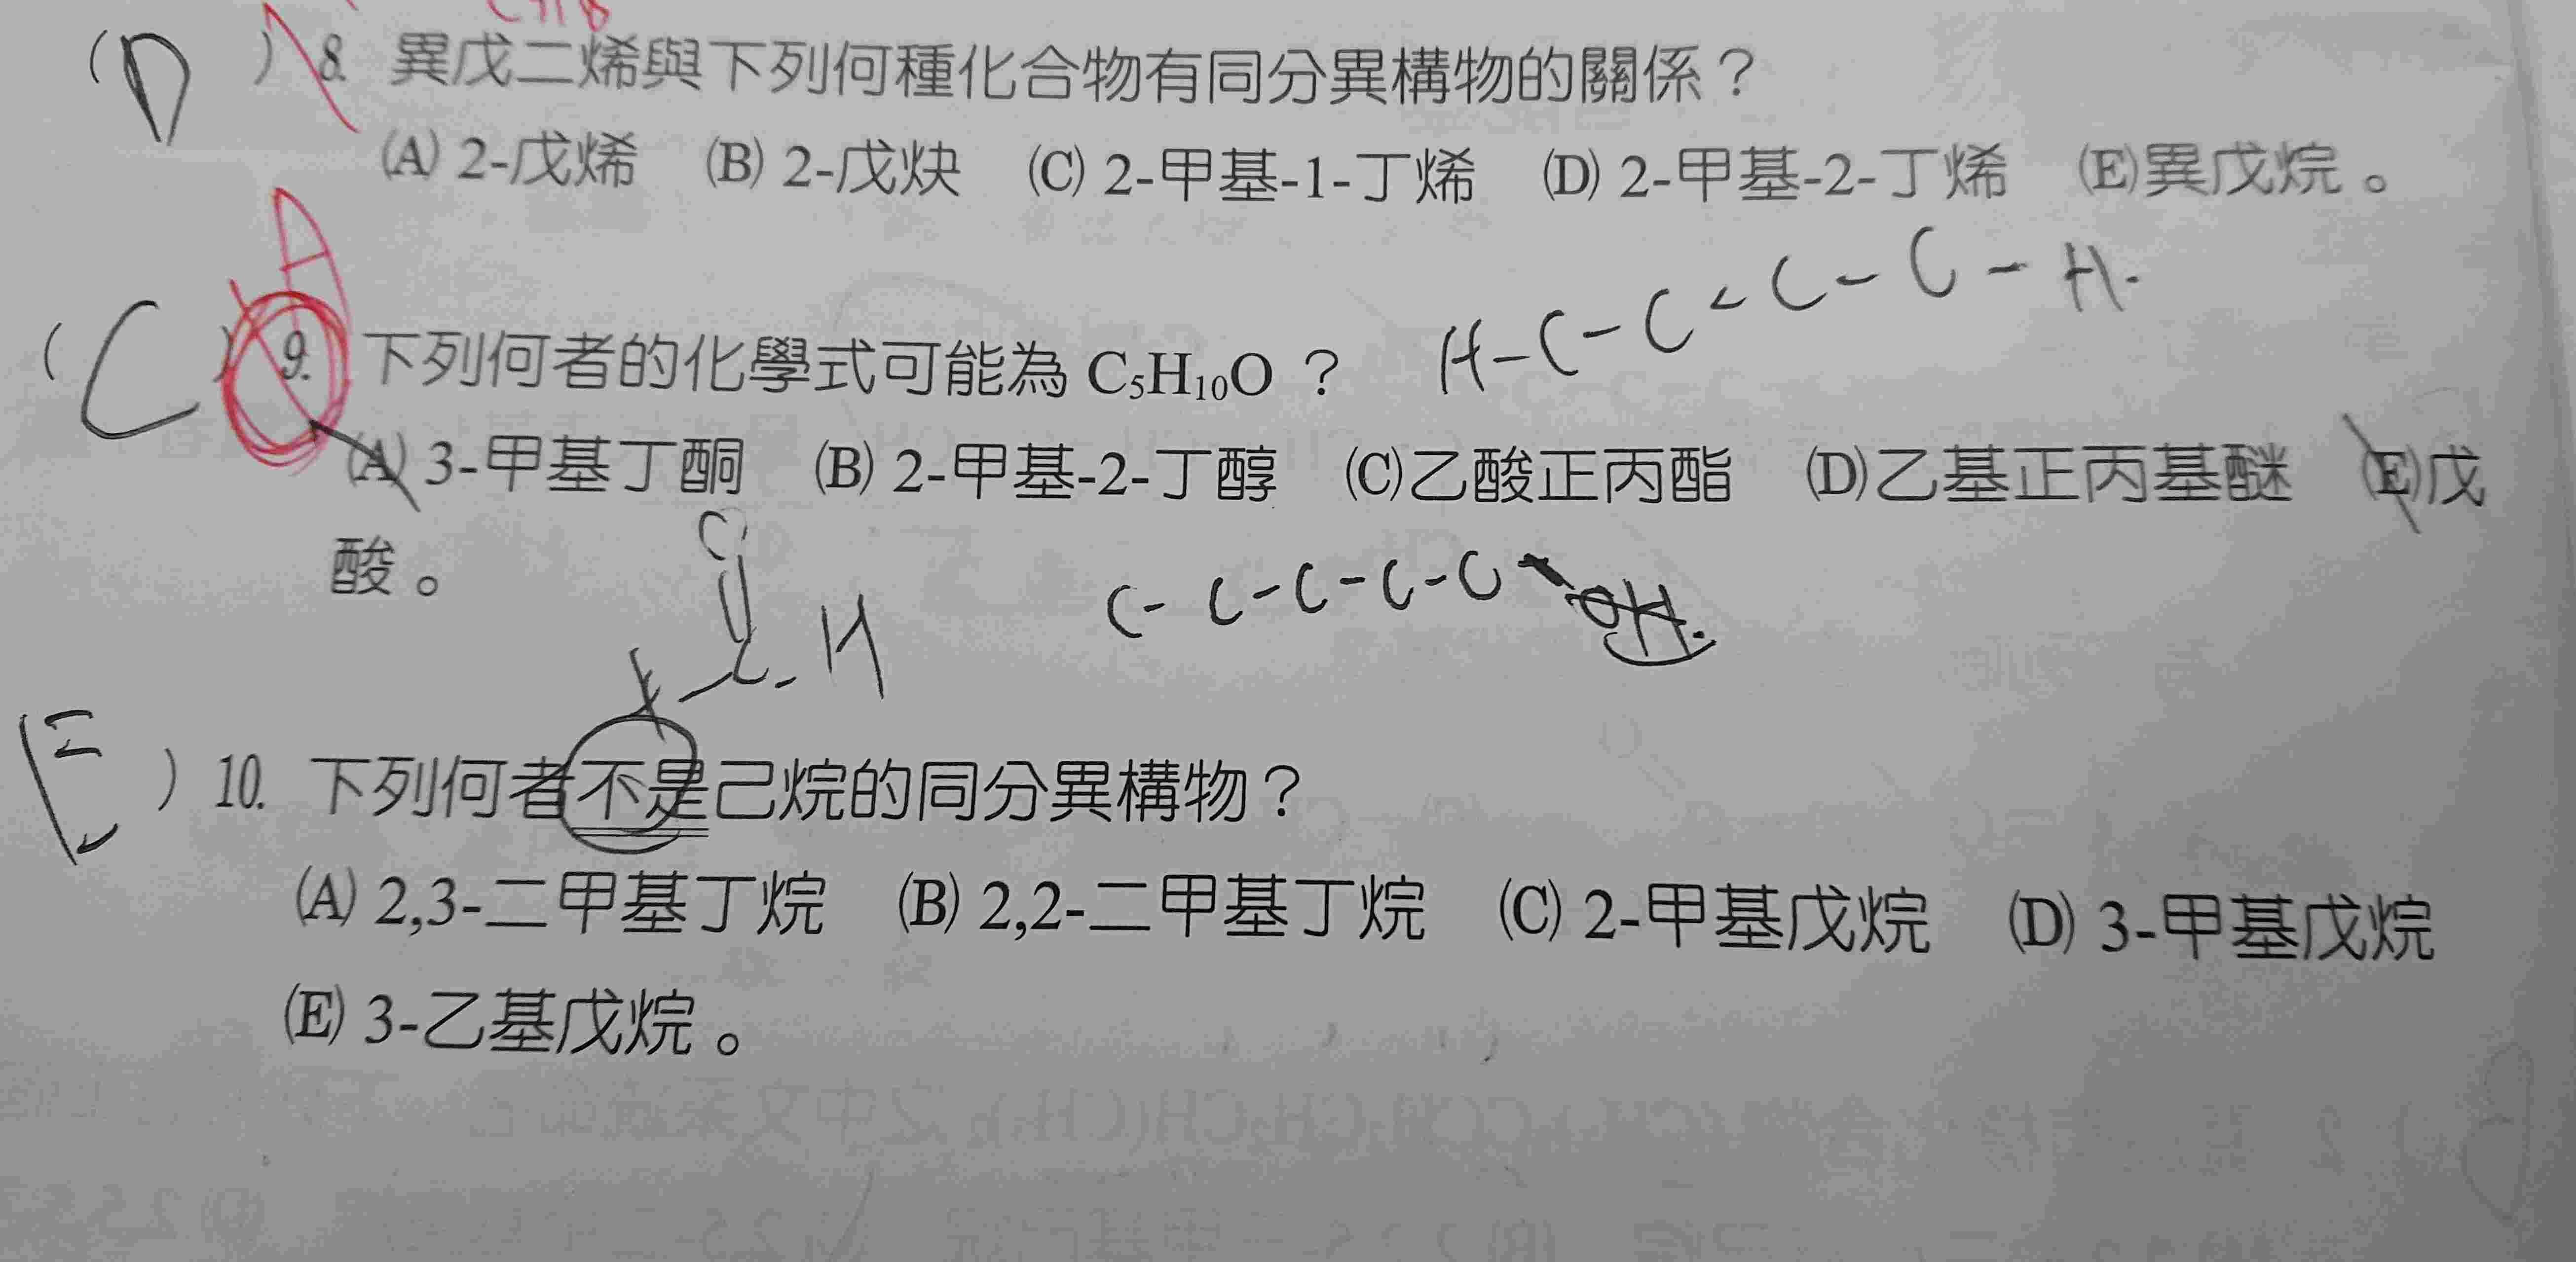 (D) 8. 異戊二烯與下列何種化合物有同分異構物的關係？
(A) 2-戊烯 (B) 2-戊炔 (C) 2-甲基-1-丁烯 (D) 2-甲基-2-丁烯 (E)異戊烷。
A
H-C-C=C-C-H.
(C) 9. 下列何者的化學式可能為 C₅H₁₀O ？
(A) 3-甲基丁酮 (B) 2-甲基-2-丁醇 (C)乙酸正丙酯 (D)乙基正丙基醚 (E)戊
酸。
C-C-C-C-C-OH.
E ) 10. 下列何者不是己烷的同分異構物？
(A) 2,3-二甲基丁烷 (B) 2,2-二甲基丁烷 (C) 2-甲基戊烷 (D) 3-甲基戊烷
(E) 3-乙基戊烷。